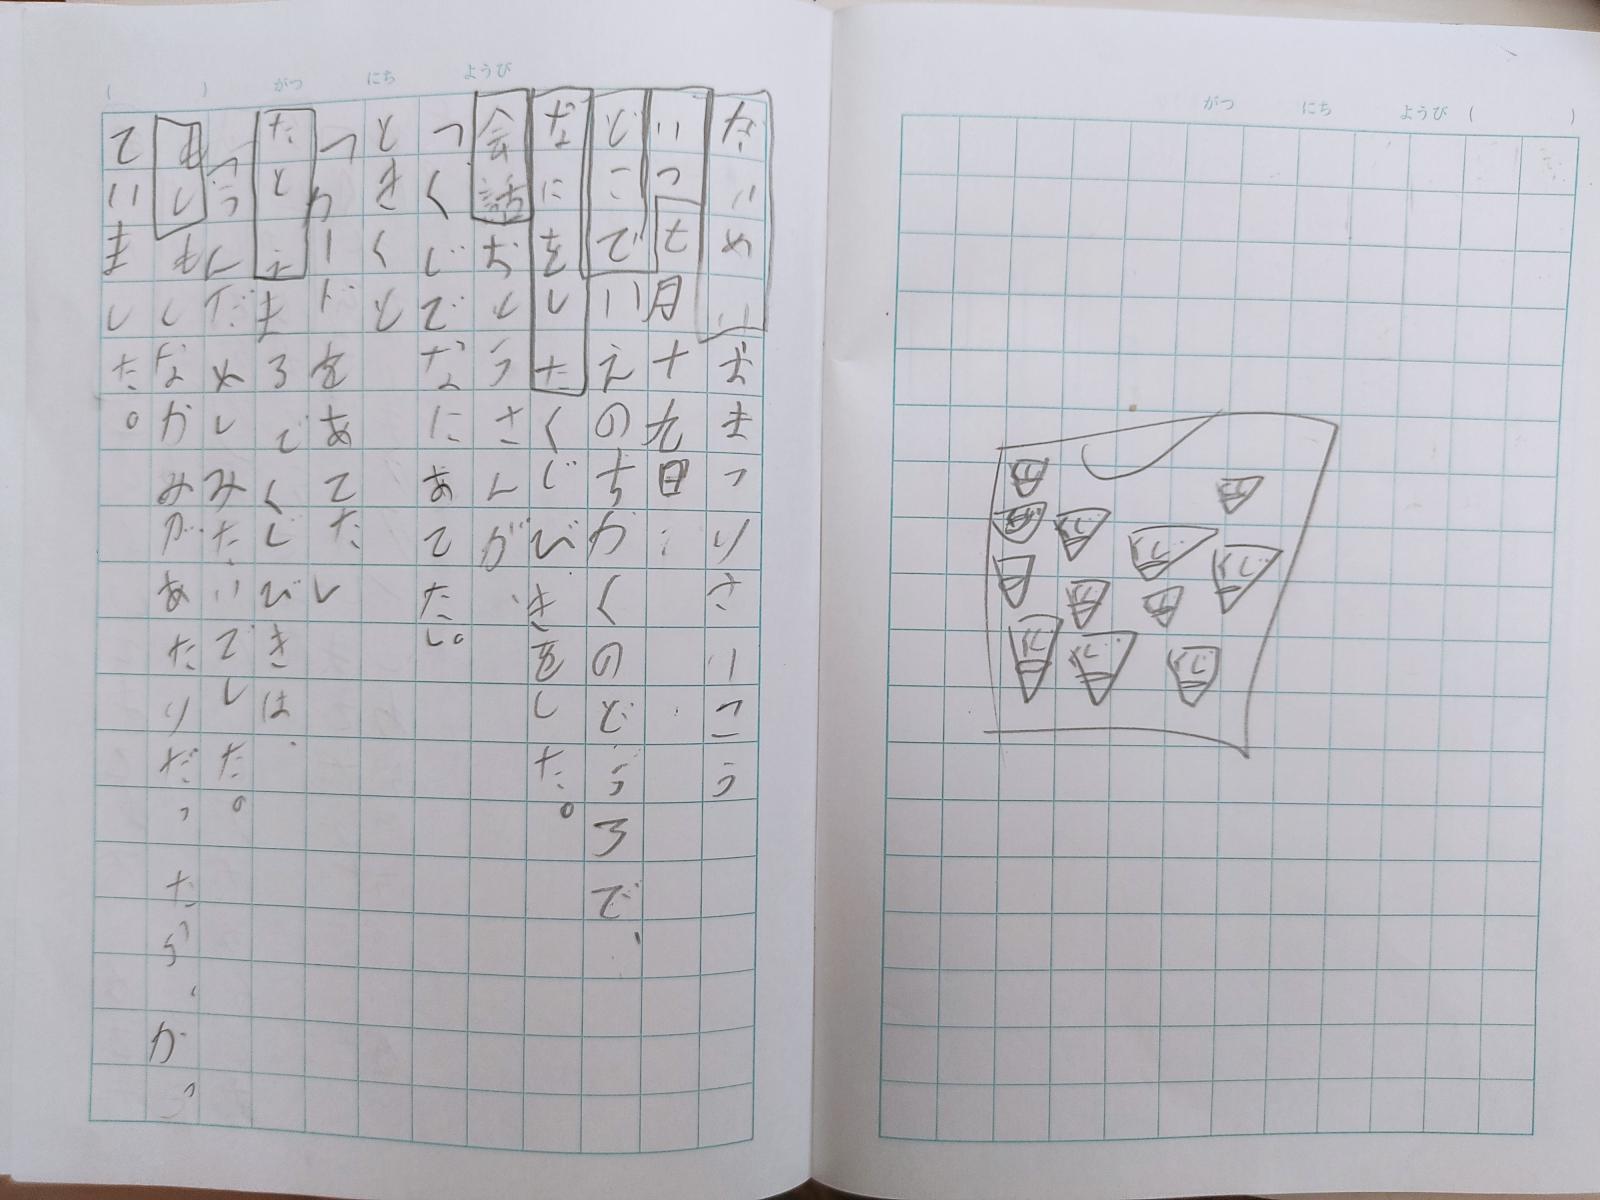 がつ にち ようび ( )
( ) がつ にち ようび
だいめいおまつりさいこう
いつ七月十九日:
どこでいえのちかくのどうろで、
なにをしたくじびきをした。
会話おとうさんが、
「くじでなにあてたい。
ときくと
「カードをあてたし
たとえまるでくじびきは、
「うんだめしみたいでした。
もしもしなかみがあたりだったら、かっ
ていました。
くじ
くじ
くじ
くじ
くじ
くじ